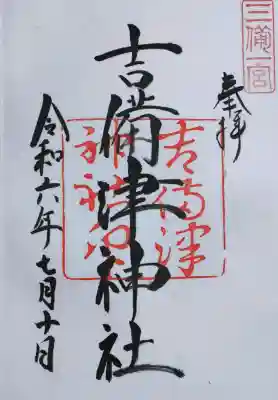 三備一宮
奉拝
吉備津神社
吉備津
令和六年七月十日